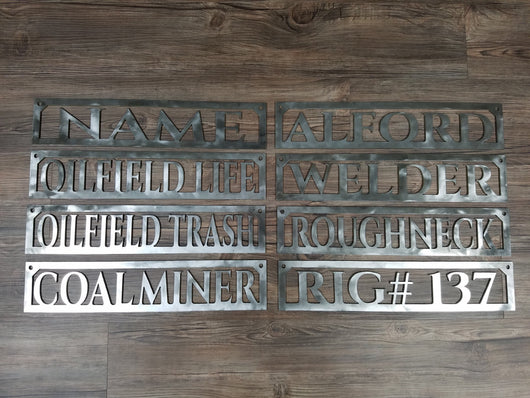 NAME
ALFORD
OILFIELD LIFE
WELDER
OILFIELD TRASH
ROUGHNECK
COALMINER
RIG# 137